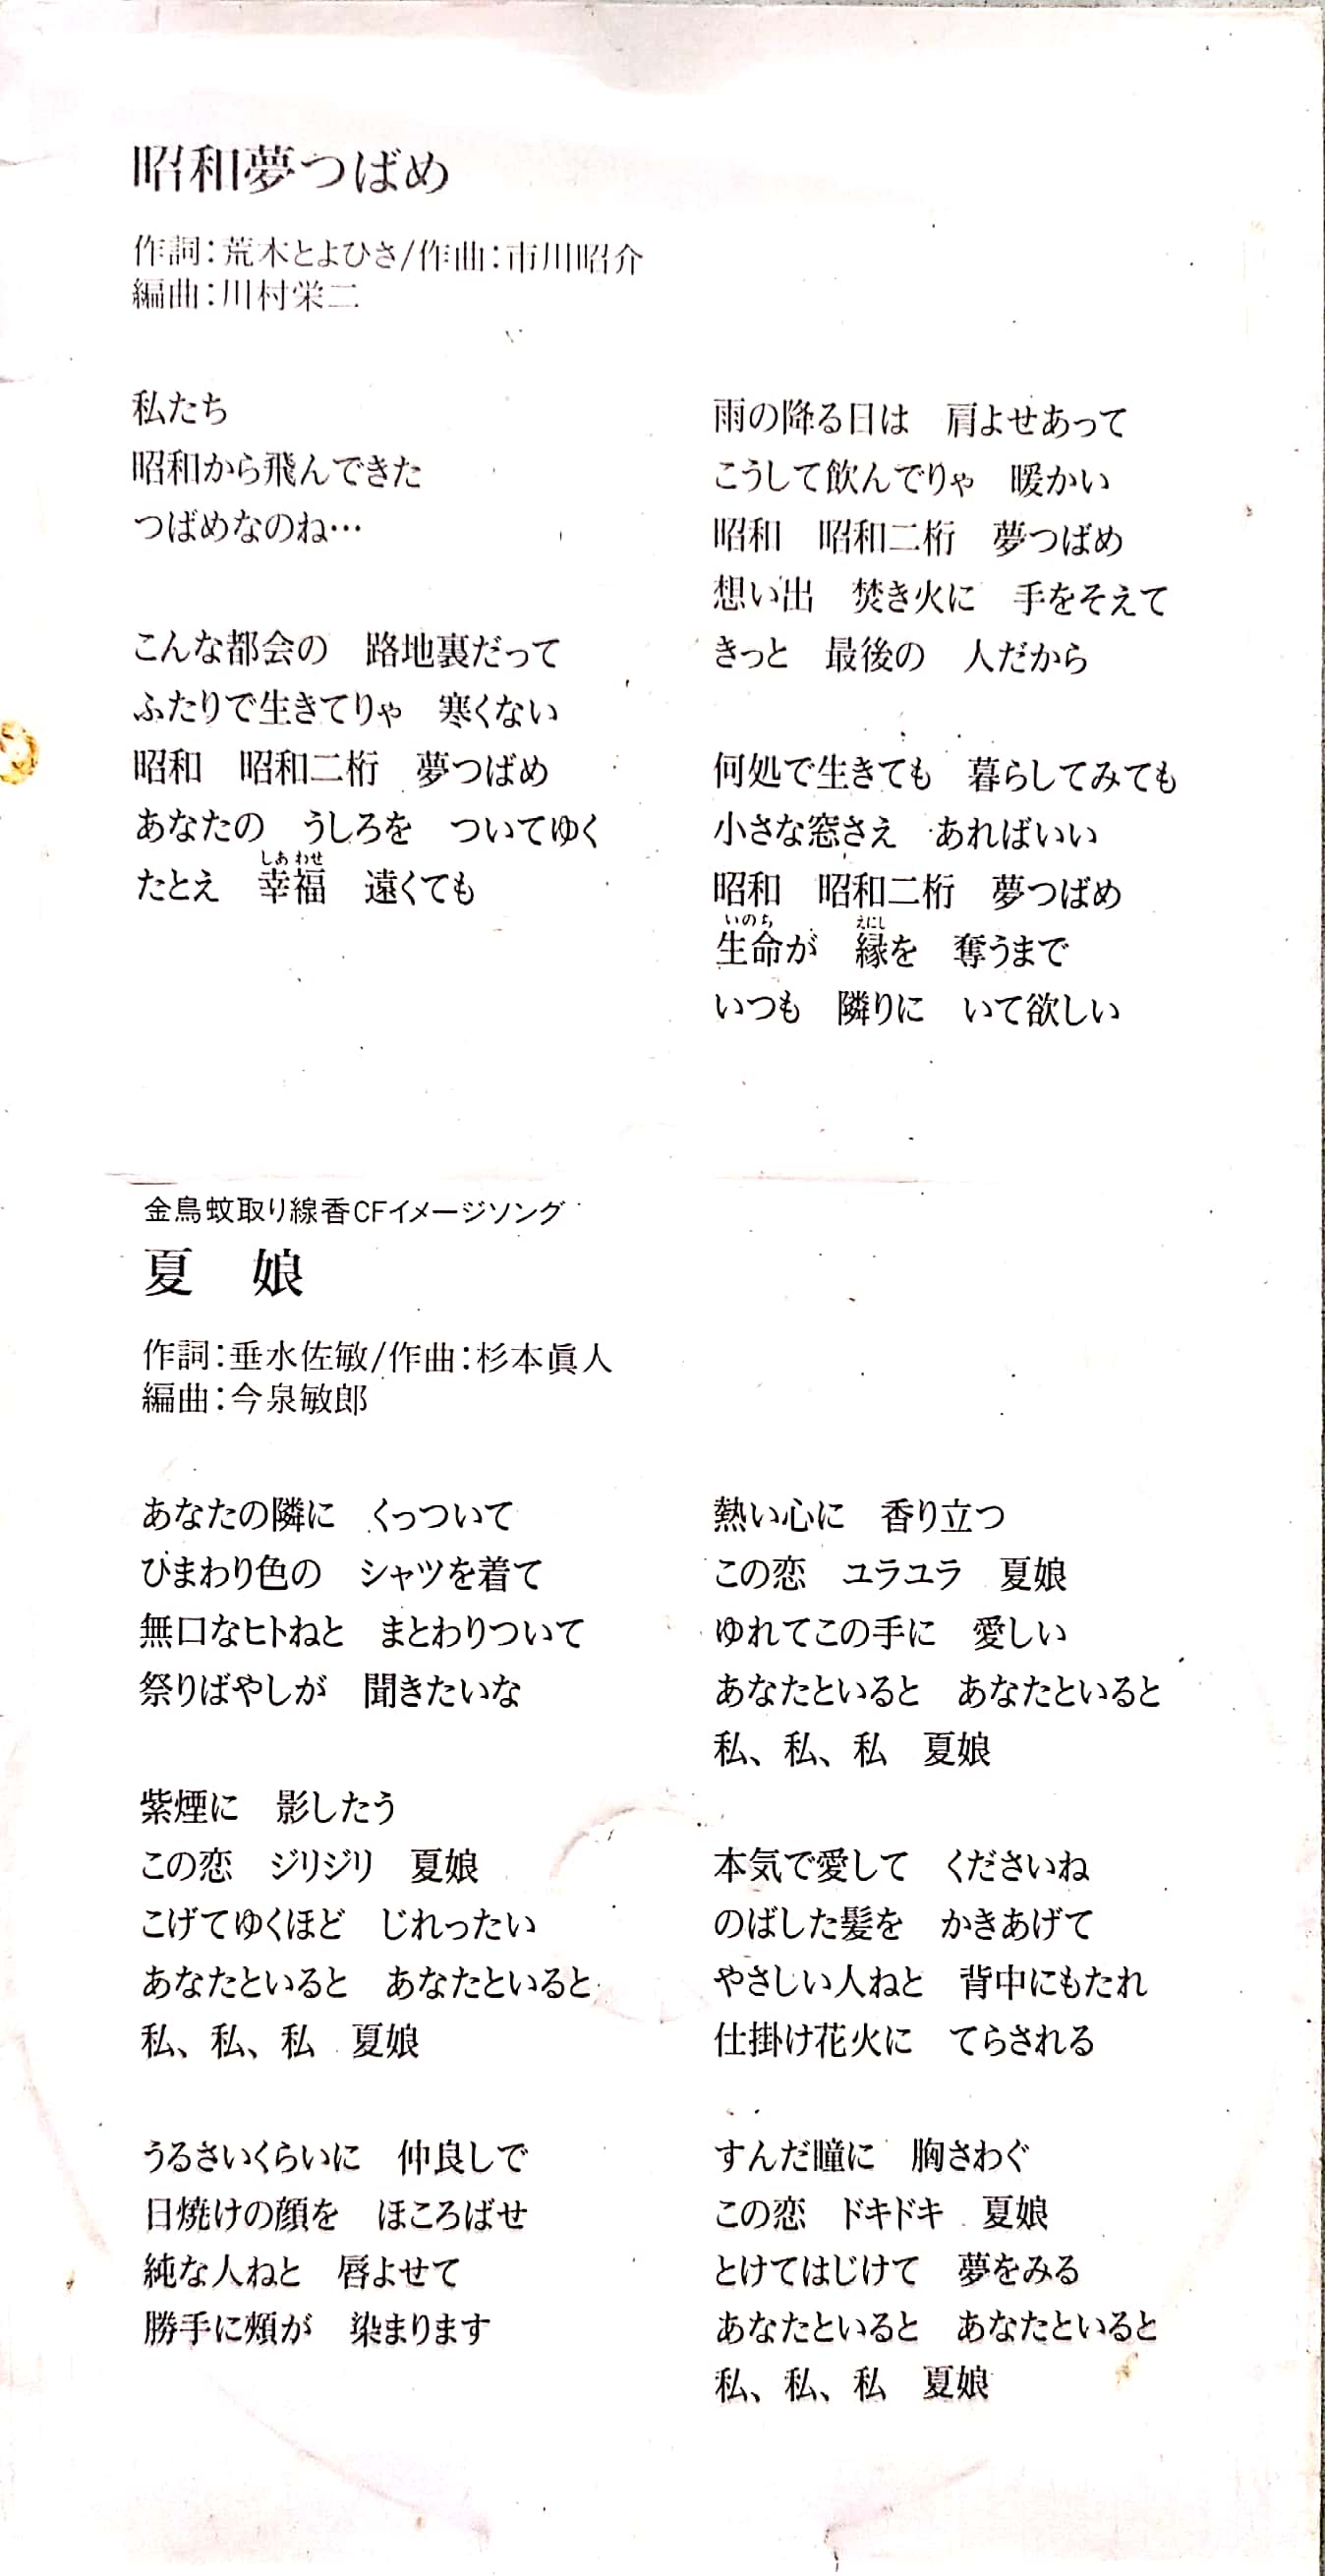 昭和夢つばめ
作詞:荒木とよひさ/作曲:市川昭介
編曲:川村栄二
私たち
昭和から飛んできた
つばめなのね…
こんな都会の　路地裏だって
ふたりで生きてりゃ　寒くない
昭和　昭和二桁　夢つばめ
あなたの　うしろを　ついてゆく
しあわせ
たとえ　幸福　遠くても
雨の降る日は　肩よせあって
こうして飲んでりゃ　暖かい
昭和　昭和二桁　夢つばめ
想い出　焚き火に　手をそえて
きっと　最後の　人だから
何処で生きても　暮らしてみても
小さな窓さえ　あればいい
昭和　昭和二桁　夢つばめ
いのち　えにし
生命が　縁を　奪うまで
いつも　隣りに　いて欲しい
金鳥蚊取り線香CFイメージソング
夏　娘
作詞:垂水佐敏/作曲:杉本眞人
編曲:今泉敏郎
あなたの隣に　くっついて
ひまわり色の　シャツを着て
無口なヒトねと　まとわりついて
祭りばやしが　聞きたいな
紫煙に　影したう
この恋　ジリジリ　夏娘
こげてゆくほど　じれったい
あなたといると　あなたといると
私、私、私　夏娘
うるさいくらいに　仲良しで
日焼けの顔を　ほころばせ
純な人ねと　唇よせて
勝手に頬が　染まります
熱い心に　香り立つ
この恋　ユラユラ　夏娘
ゆれてこの手に　愛しい
あなたといると　あなたといると
私、私、私　夏娘
本気で愛して　くださいね
のばした髪を　かきあげて
やさしい人ねと　背中にもたれ
仕掛け花火に　てらされる
すんだ瞳に　胸さわぐ
この恋　ドキドキ　夏娘
とけてはじけて　夢をみる
あなたといると　あなたといると
私、私、私　夏娘